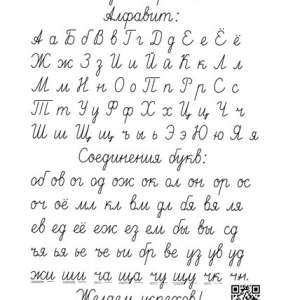 Алфавит:
А а Б б В в Г г Д д Е е Ё ё
Ж ж З з И и Й й К к Л л
М м Н н О о П п Р р С с
Т т У у Ф ф Х х Ц ц Ч ч
Ш ш Щ щ ъ ы ь Э э Ю ю Я я
Соединения букв:
об ов ог од ож ок ол он ор ос
оч оё мл кл вм дл бя вя ля
ев ед её еж ез ем бы вы сд
ъя ья ье ъе ьи бр ве уз ув уд
жи ши ча ща чу щу чк чн.
Желаем успехов!